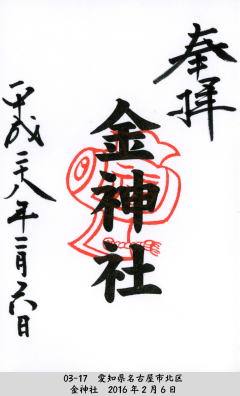 奉拝
金神社
平成二十八年二月六日
03-17 愛知県名古屋市北区
金神社 2016年2月6日